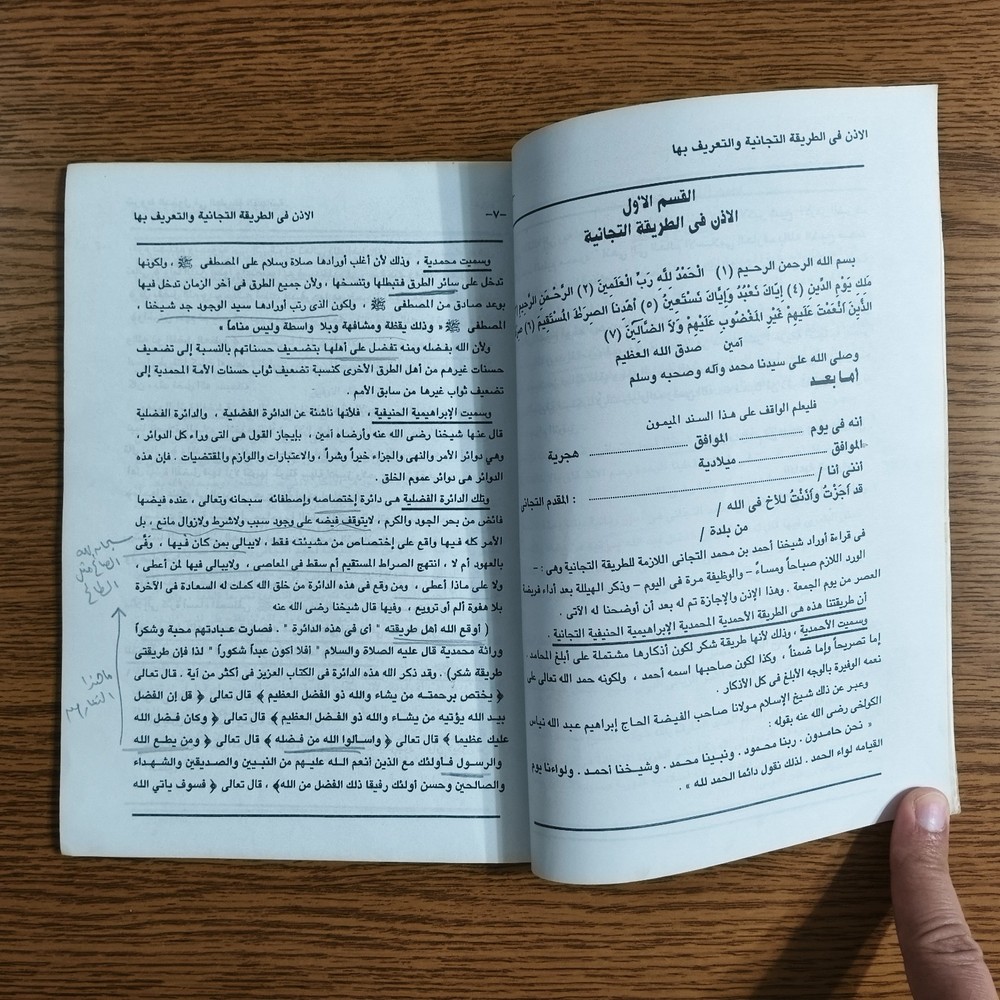 الاذن فى الطريقة التجانية والتعريف بها
القسم الأول
الاذن فى الطريقة التجانية
بسم الله الرحمن الرحيم (١) الْحَمْدُ لِلَّهِ رَبِّ الْعَلَمِينَ (٢) الرَّحْمَنِ الرَّحِيمِ
مَلِكِ يَوْمِ الدِّينِ (٤) إِيَّاكَ نَعْبُدُ وَإِيَّاكَ نَسْتَعِينُ (٥) اهْدِنَا الصِرَطَ الْمُسْتَقِيمَ (٦)
الَّذِينَ أَنْعَمْتَ عَلَيْهِمْ غَيْرِ الْمَغْضُوبِ عَلَيْهِمْ وَلَا الضَّالِّينَ (٧)
آمين صدق الله العظيم
وصلى الله على سيدنا محمد وآله وصحبه وسلم
أما بعد
فليعلم الواقف على هذا السند الميمون
انه فى يوم الموافق هجرية
الموافق ميلادية
أننى أنا / : المقدم التجانى
قد أجَزْتُ وأذَنْتُ للأخ فى الله /
من بلدة /
فى قراءة أوراد شيخنا أحمد بن محمد التجانى اللازمة للطريقة التجانية وهى : -
الورد اللازم صباحاً ومساءً – والوظيفة مرة فى اليوم – وذكر الهيللة بعد أداء فريضة
العصر من يوم الجمعة . وهذا الإذن والإجازة تم له بعد أن أوضحنا له الآتى .
أن طريقتنا هذه هى الطريقة الأحمدية المحمدية الإبراهيمية الحنيفية التجانية .
وسميت الأحمدية ، وذلك لأنها طريقة شكر لكون أذكارها مشتملة على أبلغ المحامد .
إما تصريحاً وإما ضمناً ، وكذا لكون صاحبها اسمه أحمد ، ولكونه حمد الله تعالى على
نعمه الوفيرة بالوجه الأبلغ فى كل الأذكار .
وعبر عن ذلك شيخ الإسلام مولانا صاحب الفيضة الحاج إبراهيم عبد الله نياس
الكولخى رضى الله عنه بقوله :
« نحن حامدون . ربنا محمود . ونبينا محمد . وشيخنا أحمد . ولواءنا يوم
القيامه لواء الحمد . لذلك نقول دائما الحمد لله » .
–٧– الاذن فى الطريقة التجانية والتعريف بها
وسميت محمدية ، وذلك لأن أغلب أورادها صلاة وسلام على المصطفى ﷺ ، ولكونها
تدخل على سائر الطرق فتبطلها وتنسخها ، ولأن جميع الطرق فى آخر الزمان تدخل فيها
بوعد صادق من المصطفى ﷺ ، ولكون الذى رتب أورادها سيد الوجود جد شيخنا ،
المصطفى ﷺ « وذلك يقظة ومشافهة وبلا واسطة وليس مناماً »
ولأن الله بفضله ومنه تفضل على أهلها بتضعيف حسناتهم بالنسبة إلى تضعيف
حسنات غيرهم من أهل الطرق الأخرى كنسبة تضعيف ثواب حسنات الأمة المحمدية إلى
تضعيف ثواب غيرها من سابق الأمم .
وسميت الإبراهيمية الحنيفية ، فلأنها ناشئة عن الدائرة الفضلية ، والدائرة الفضلية
قال عنها شيخنا رضى الله عنه وأرضاه آمين ، بإيجاز القول هى التى وراء كل الدوائر ،
وهى دوائر الأمر والنهى والجزاء خيراً وشراً ، والاعتبارات واللوازم والمقتضيات . فإن هذه
الدوائر هى دوائر عموم الخلق .
وتلك الدائرة الفضلية هى دائرة إختصاصه وإصطفائه سبحانه وتعالى ، عنده فيضها
فائض من بحر الجود والكرم ، لايتوقف فيضه على وجود سبب ولاشرط ولازوال مانع ، بل
الأمر كله فيها واقع على إختصاص من مشيئته فقط ، لايبالى بمن كان فيها ، وَفَّى
بالعهود أم لا ، انتهج الصراط المستقيم أم سقط فى المعاصى ، ولايبالى فيها لمن أعطى ،
ولا على ماذا أعطى ، ومن وقع فى هذه الدائرة من خلق الله كملت له السعادة فى الآخرة
بلا هفوة ألم أو ترويع ، وفيها قال شيخنا رضى الله عنه
( أوقع الله أهل طريقته " أى فى هذه الدائرة " . فصارت عبادتهم محبة وشكراً
وراثة محمدية قال عليه الصلاة والسلام " أفلا أكون عبداً شكوراً " لذا فإن طريقتى
طريقة شكر) . وقد ذكر الله هذه الدائرة فى الكتاب العزيز فى أكثر من آية . قال تعالى
﴿ يختص برحمته من يشاء والله ذو الفضل العظيم ﴾ قال تعالى ﴿ قل إن الفضل
بيد الله يؤتيه من يشاء والله ذو الفضل العظيم ﴾ قال تعالى ﴿ وكان فضل الله
عليك عظيما ﴾ قال تعالى ﴿ واسألوا الله من فضله ﴾ قال تعالى ﴿ ومن يطع الله
والرسول فأولئك مع الذين أنعم الله عليهم من النبيين والصديقين والشهداء
والصالحين وحسن أولئك رفيقا ذلك الفضل من الله﴾ ، قال تعالى ﴿ فسوف يأتي الله